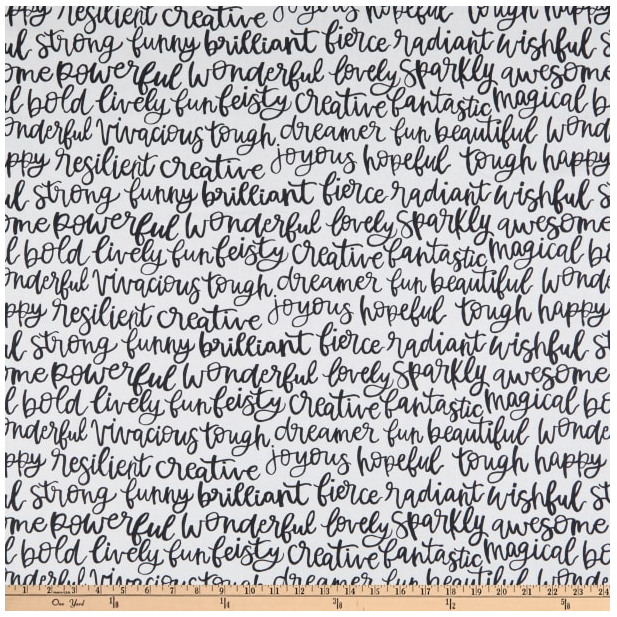 resilient creative joyous hopeful tough happy
ul strong funny brilliant fierce radiant wishful s
ome powerful wonderful lovely sparkly awesome
l bold lively fun feisty creative fantastic magical b
onderful vivacious tough dreamer fun beautiful wond
ppy resilient creative joyous hopeful tough happy
ul strong funny brilliant fierce radiant wishful s
ome powerful wonderful lovely sparkly awesome
l bold lively fun feisty creative fantastic magical bo
onderful vivacious tough dreamer fun beautiful wond
ppy resilient creative joyous hopeful tough happy
ul strong funny brilliant fierce radiant wishful st
me powerful wonderful lovely sparkly awesome
l bold lively fun feisty creative fantastic magical bo
onderful vivacious tough dreamer fun beautiful wonde
ppy resilient creative joyous hopeful tough happy
ul strong funny brilliant fierce radiant wishful st
me powerful wonderful lovely sparkly awesome
l bold lively fun feisty creative fantastic magical bo
nderful vivacious tough dreamer fun beautiful wonde
1 2 3 4 5 6 7 8 9 10 11 12 13 14 15 16 17 18 19 20 21 22 23 24
One Yard 1/8 1/4 3/8 1/2 5/8